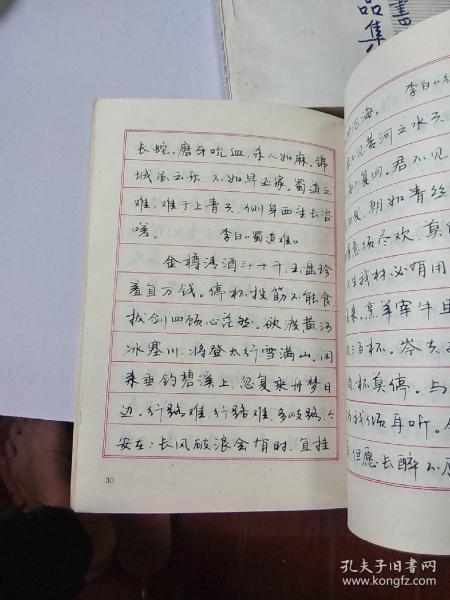 书
品集
长蛇。磨牙吮血，杀人如麻。锦
城虽云乐，不如早还家。蜀道之
难，难于上青天，侧身西望长咨
嗟。 李白《蜀道难》
金樽清酒斗十千，玉盘珍
羞直万钱。停杯投筯不能食，
拔剑四顾心茫然。欲渡黄河
冰塞川，将登太行雪满山。闲
来垂钓碧溪上，忽复乘舟梦日
边。行路难，行路难，多歧路，今
安在：长风破浪会有时，直挂
30
沧海。 李白《行
不见黄河之水天
不复回。君不见
发，朝如青丝
得意须尽欢，莫
天生我材必有用
来。烹羊宰牛且
三百杯。岑夫
杯莫停。与
为我倾耳听。
但愿长醉不
孔夫子旧书网
www.kongfz.com